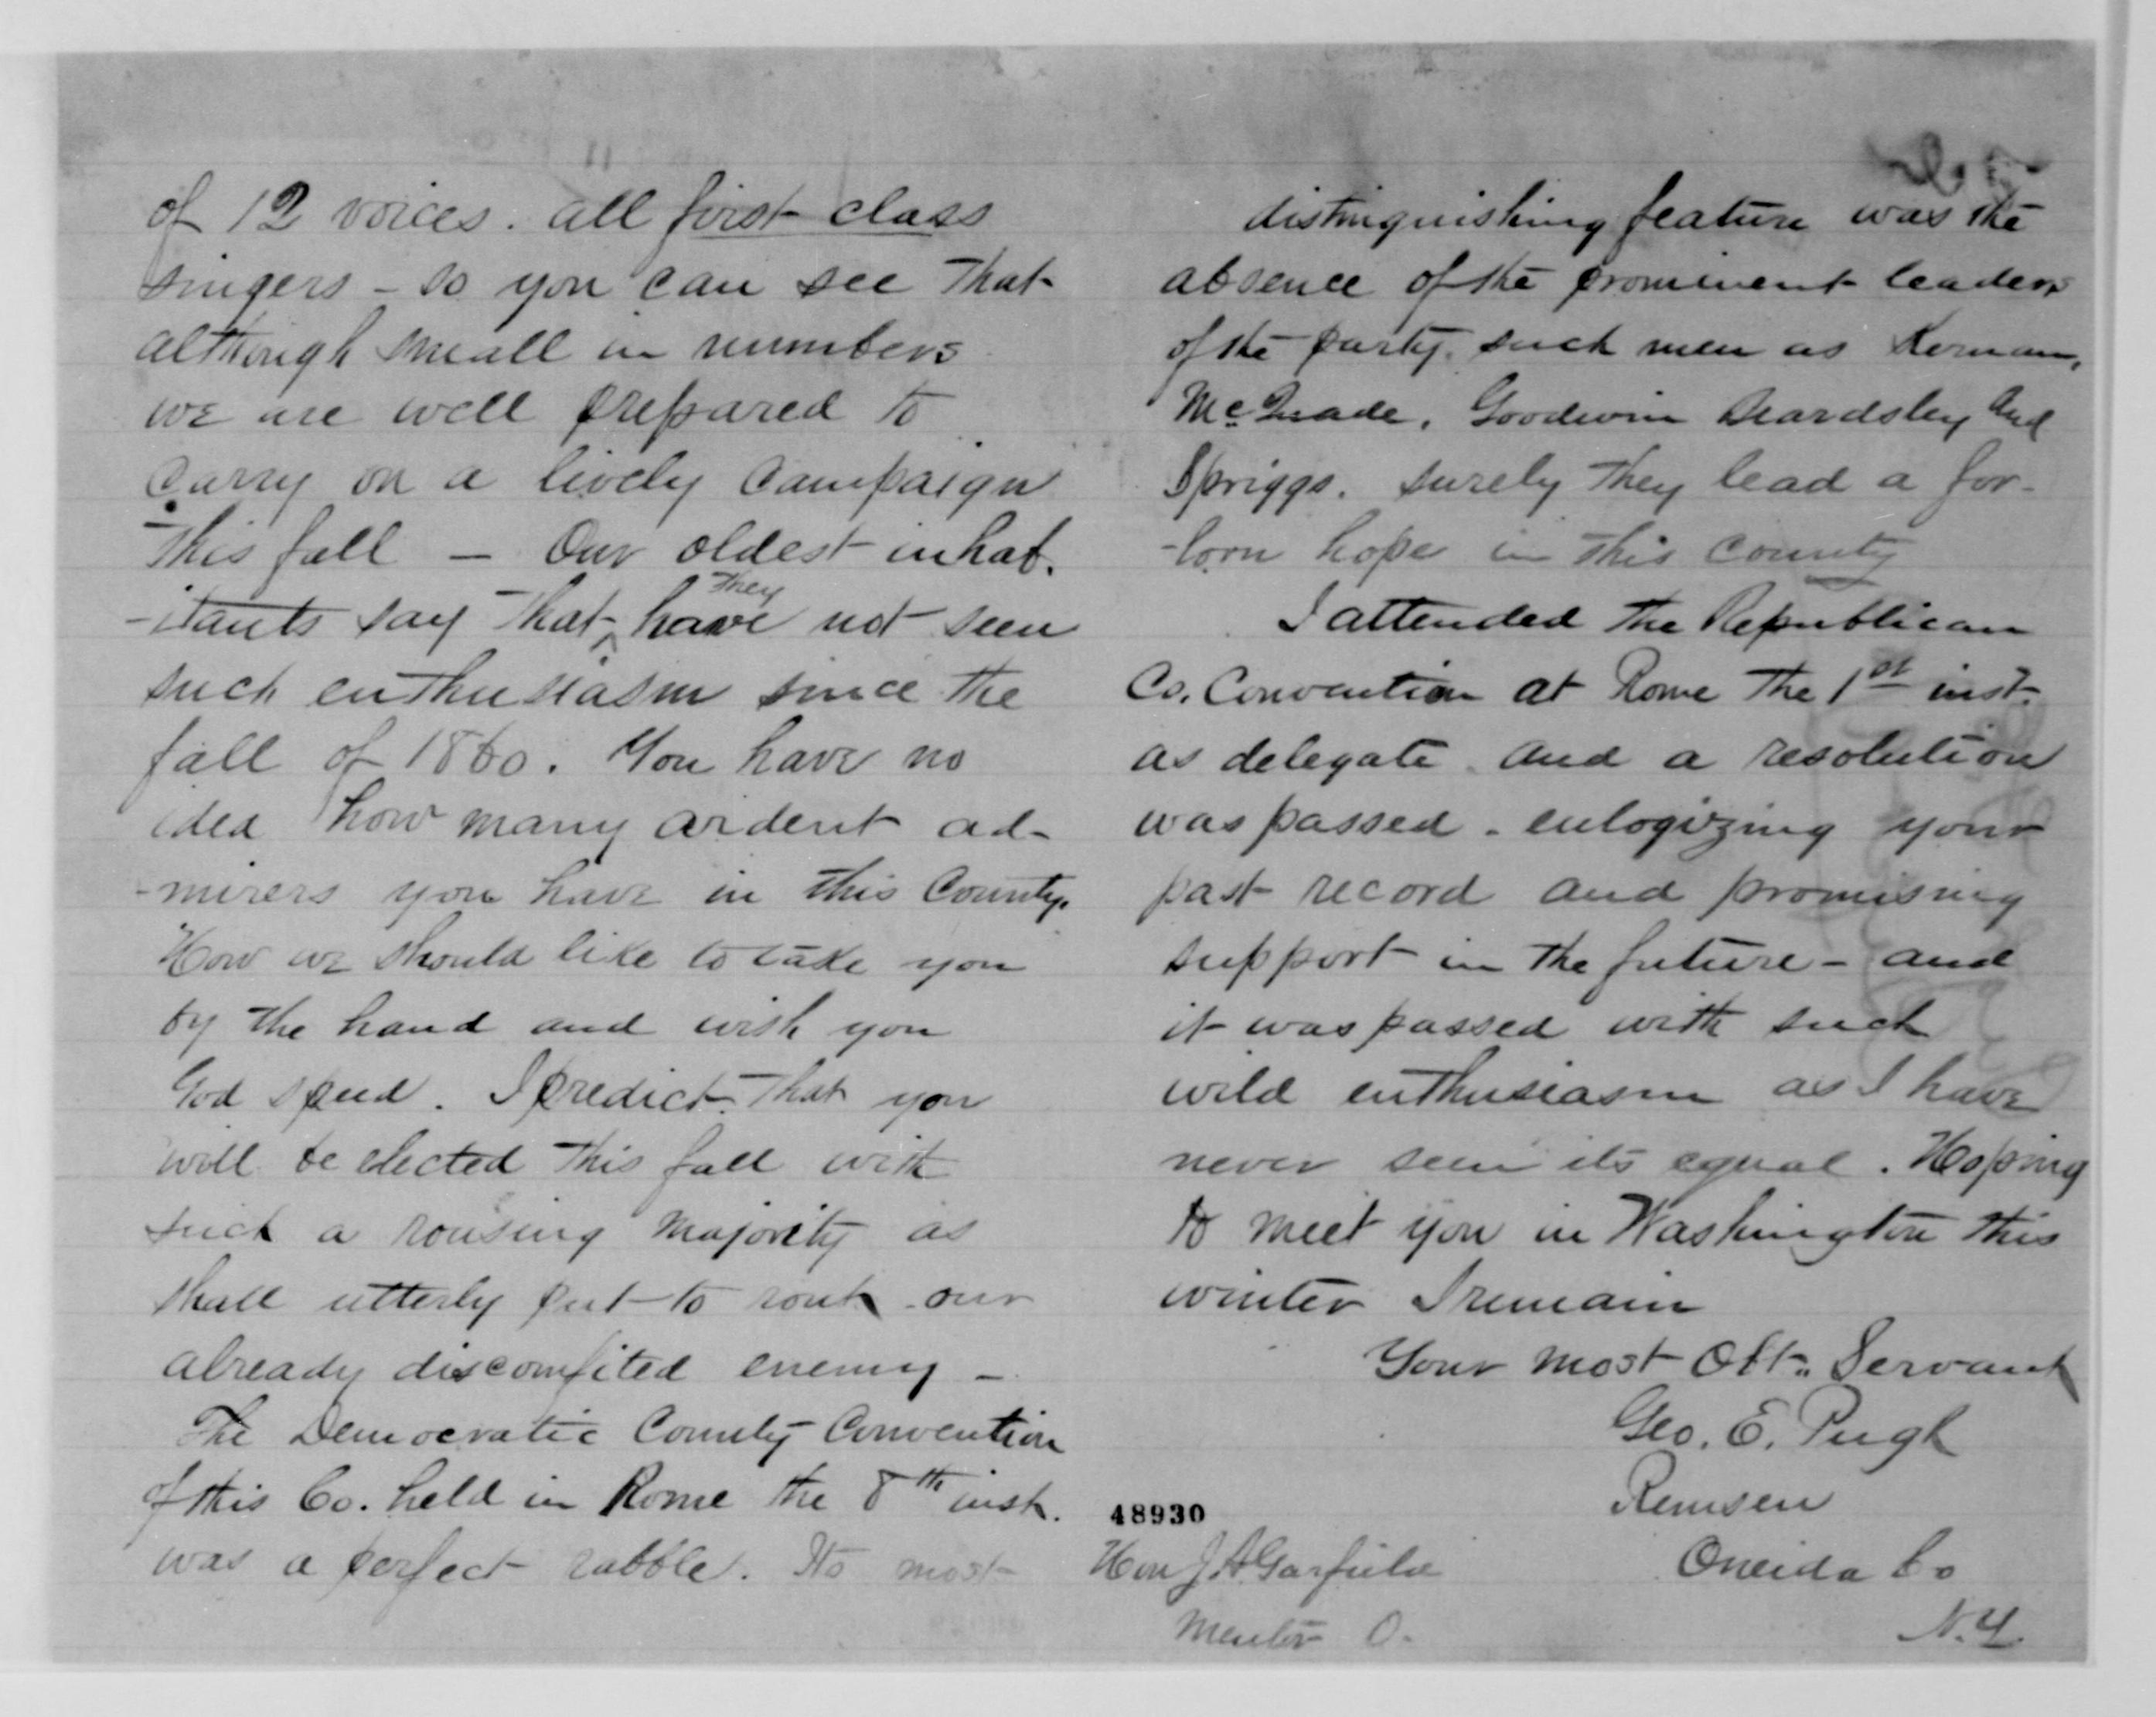 of 12 voices. all first class
singers - so you can see that
although small in numbers
we are well prepared to
carry on a lively campaign
this fall - Our oldest inhab-
-itants say that they have not seen
such enthusiasm since the
fall of 1860. You have no
idea how many ardent ad-
-mirers you have in this County.
How we should like to take you
by the hand and wish you
God speed. I predict that you
will be elected this fall with
such a rousing majority as
shall utterly put to rout our
already discomfited enemy -
The Democratic County Convention
of this Co. held in Rome the 8th inst.
was a perfect rabble. Its most
distinguishing feature was the
absence of the prominent leaders
of the party. such men as Kernan,
McQuade, Goodwin Beardsley and
Spriggs. surely they lead a for-
-lorn hope in this county
I attended the Republican
Co. Convention at Rome the 1st inst.
as delegate and a resolution
was passed - eulogizing your
past record and promising
support in the future - and
it was passed with such
wild enthusiasm as I have
never seen its equal. Hoping
to meet you in Washington this
winter I remain
Your most Obt. Servant
Geo. E. Pugh
Remsen
Oneida Co
N.Y.
48930
Hon J. A. Garfield
Mentor O.